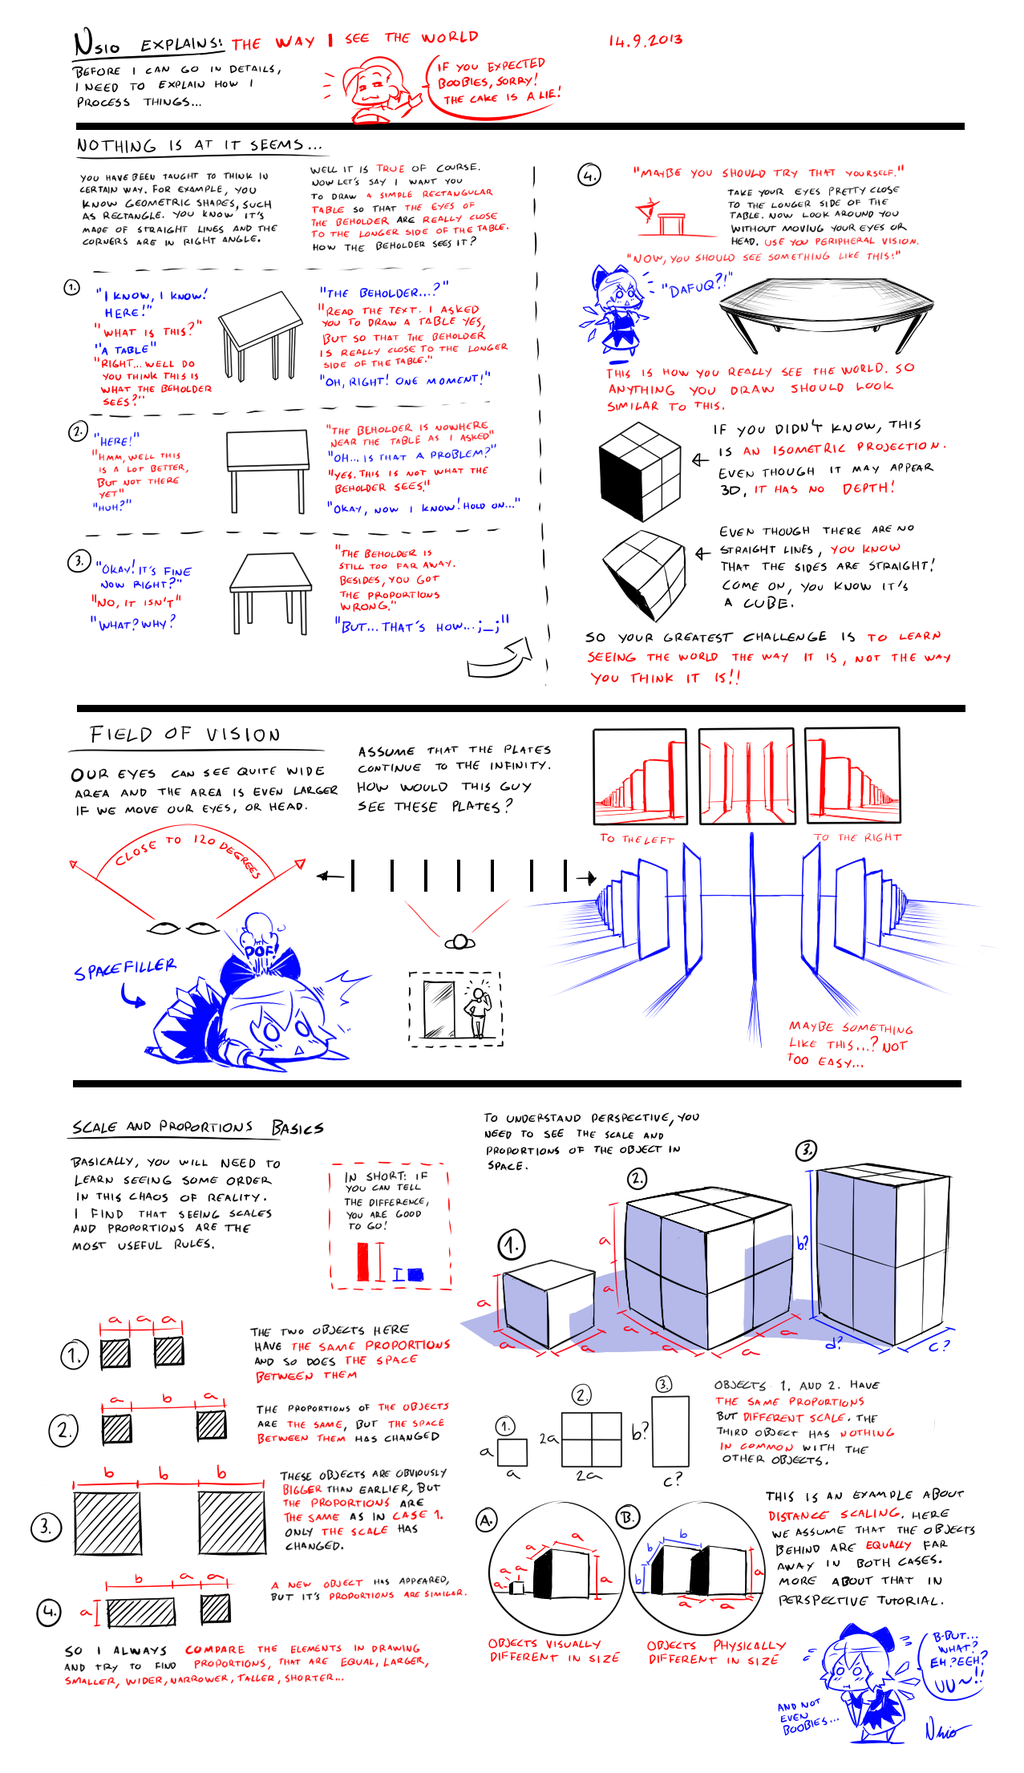 Nsio EXPLAINS: THE WAY I SEE THE WORLD
14.9.2013
BEFORE I CAN GO IN DETAILS,
I NEED TO EXPLAIN HOW I
PROCESS THINGS...
IF YOU EXPECTED
BOOBIES, SORRY!
THE CAKE IS A LIE!
NOTHING IS AT IT SEEMS...
YOU HAVE BEEN TAUGHT TO THINK IN
CERTAIN WAY. FOR EXAMPLE, YOU
KNOW GEOMETRIC SHAPES, SUCH
AS RECTANGLE. YOU KNOW IT'S
MADE OF STRAIGHT LINES AND THE
CORNERS ARE IN RIGHT ANGLE.
WELL IT IS TRUE OF COURSE.
NOW LET'S SAY I WANT YOU
TO DRAW A SIMPLE RECTANGULAR
TABLE SO THAT THE EYES OF
THE BEHOLDER ARE REALLY CLOSE
TO THE LONGER SIDE OF THE TABLE.
HOW THE BEHOLDER SEES IT?
1.
"I KNOW, I KNOW!
HERE!"
"WHAT IS THIS?"
"A TABLE"
"RIGHT... WELL DO
YOU THINK THIS IS
WHAT THE BEHOLDER
SEES?"
"THE BEHOLDER...?"
"READ THE TEXT. I ASKED
YOU TO DRAW A TABLE YES,
BUT SO THAT THE BEHOLDER
IS REALLY CLOSE TO THE LONGER
SIDE OF THE TABLE."
"OH, RIGHT! ONE MOMENT!"
2.
"HERE!"
"HMM, WELL THIS
IS A LOT BETTER,
BUT NOT THERE
YET"
"HUH?"
"THE BEHOLDER IS NOWHERE
NEAR THE TABLE AS I ASKED"
"OH... IS THAT A PROBLEM?"
"YES. THIS IS NOT WHAT THE
BEHOLDER SEES."
"OKAY, NOW I KNOW! HOLD ON..."
3.
"OKAY! IT'S FINE
NOW RIGHT?"
"NO, IT ISN'T"
"WHAT? WHY?
"THE BEHOLDER IS
STILL TOO FAR AWAY.
BESIDES, YOU GOT
THE PROPORTIONS
WRONG."
"BUT... THAT'S HOW... ;_;"
4.
"MAYBE YOU SHOULD TRY THAT YOURSELF."
TAKE YOUR EYES PRETTY CLOSE
TO THE LONGER SIDE OF THE
TABLE. NOW LOOK AROUND YOU
WITHOUT MOVING YOUR EYES OR
HEAD. USE YOU PERIPHERAL VISION.
"NOW, YOU SHOULD SEE SOMETHING LIKE THIS:"
"DAFUQ?!"
THIS IS HOW YOU REALLY SEE THE WORLD. SO
ANYTHING YOU DRAW SHOULD LOOK
SIMILAR TO THIS.
IF YOU DIDN'T KNOW, THIS
IS AN ISOMETRIC PROJECTION.
EVEN THOUGH IT MAY APPEAR
3D, IT HAS NO DEPTH!
EVEN THOUGH THERE ARE NO
STRAIGHT LINES, YOU KNOW
THAT THE SIDES ARE STRAIGHT!
COME ON, YOU KNOW IT'S
A CUBE.
SO YOUR GREATEST CHALLENGE IS TO LEARN
SEEING THE WORLD THE WAY IT IS, NOT THE WAY
YOU THINK IT IS!!
FIELD OF VISION
OUR EYES CAN SEE QUITE WIDE
AREA AND THE AREA IS EVEN LARGER
IF WE MOVE OUR EYES, OR HEAD.
CLOSE TO 120 DEGREES
POF!
SPACEFILLER
ASSUME THAT THE PLATES
CONTINUE TO THE INFINITY.
HOW WOULD THIS GUY
SEE THESE PLATES?
TO THE LEFT
TO THE RIGHT
MAYBE SOMETHING
LIKE THIS...? NOT
TOO EASY...
SCALE AND PROPORTIONS BASICS
BASICALLY, YOU WILL NEED TO
LEARN SEEING SOME ORDER
IN THIS CHAOS OF REALITY.
I FIND THAT SEEING SCALES
AND PROPORTIONS ARE THE
MOST USEFUL RULES.
IN SHORT: IF
YOU CAN TELL
THE DIFFERENCE,
YOU ARE GOOD
TO GO!
1.
a a a
THE TWO OBJECTS HERE
HAVE THE SAME PROPORTIONS
AND SO DOES THE SPACE
BETWEEN THEM
2.
a b a
THE PROPORTIONS OF THE OBJECTS
ARE THE SAME, BUT THE SPACE
BETWEEN THEM HAS CHANGED
3.
b b b
THESE OBJECTS ARE OBVIOUSLY
BIGGER THAN EARLIER, BUT
THE PROPORTIONS ARE
THE SAME AS IN CASE 1.
ONLY THE SCALE HAS
CHANGED.
4.
b a a
a
A NEW OBJECT HAS APPEARED,
BUT IT'S PROPORTIONS ARE SIMILAR.
SO I ALWAYS COMPARE THE ELEMENTS IN DRAWING
AND TRY TO FIND PROPORTIONS, THAT ARE EQUAL, LARGER,
SMALLER, WIDER, NARROWER, TALLER, SHORTER...
TO UNDERSTAND PERSPECTIVE, YOU
NEED TO SEE THE SCALE AND
PROPORTIONS OF THE OBJECT IN
SPACE.
1.
a
a
a
2.
a
a
a
a
a
a
3.
b?
d?
c?
1.
a
a
2.
2a
2a
3.
b?
c?
OBJECTS 1. AND 2. HAVE
THE SAME PROPORTIONS
BUT DIFFERENT SCALE. THE
THIRD OBJECT HAS NOTHING
IN COMMON WITH THE
OTHER OBJECTS.
A.
a
a
a
a
a
OBJECTS VISUALLY
DIFFERENT IN SIZE
B.
b
b
b
a
a
a
OBJECTS PHYSICALLY
DIFFERENT IN SIZE
THIS IS AN EXAMPLE ABOUT
DISTANCE SCALING. HERE
WE ASSUME THAT THE OBJECTS
BEHIND ARE EQUALLY FAR
AWAY IN BOTH CASES.
MORE ABOUT THAT IN
PERSPECTIVE TUTORIAL.
B-BUT...
WHAT?
EH?EEH?
UU~!!
AND NOT
EVEN
BOOBIES...
Nsio